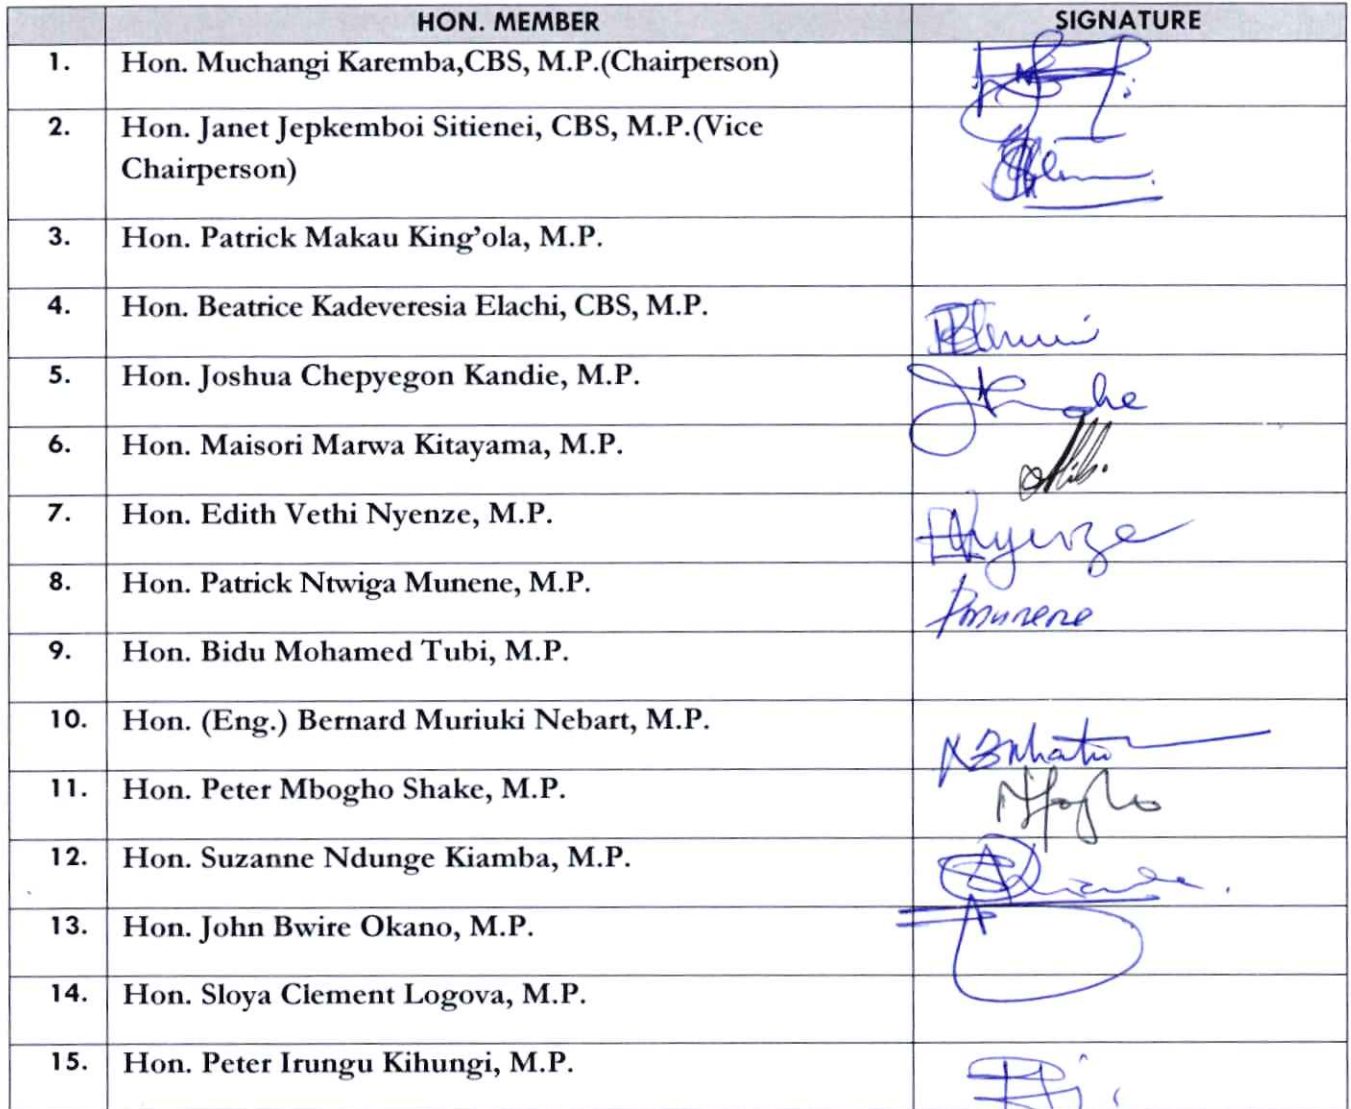 HON. MEMBER SIGNATURE
1. Hon. Muchangi Karemba,CBS, M.P.(Chairperson)
2. Hon. Janet Jepkemboi Sitienei, CBS, M.P.(Vice
Chairperson)
3. Hon. Patrick Makau King’ola, M.P.
4. Hon. Beatrice Kadeveresia Elachi, CBS, M.P.
5. Hon. Joshua Chepyegon Kandie, M.P.
6. Hon. Maisori Marwa Kitayama, M.P.
7. Hon. Edith Vethi Nyenze, M.P. Nyenze
8. Hon. Patrick Ntwiga Munene, M.P. Pmunene
9. Hon. Bidu Mohamed Tubi, M.P.
10. Hon. (Eng.) Bernard Muriuki Nebart, M.P.
11. Hon. Peter Mbogho Shake, M.P.
12. Hon. Suzanne Ndunge Kiamba, M.P.
13. Hon. John Bwire Okano, M.P.
14. Hon. Sloya Clement Logova, M.P.
15. Hon. Peter Irungu Kihungi, M.P.